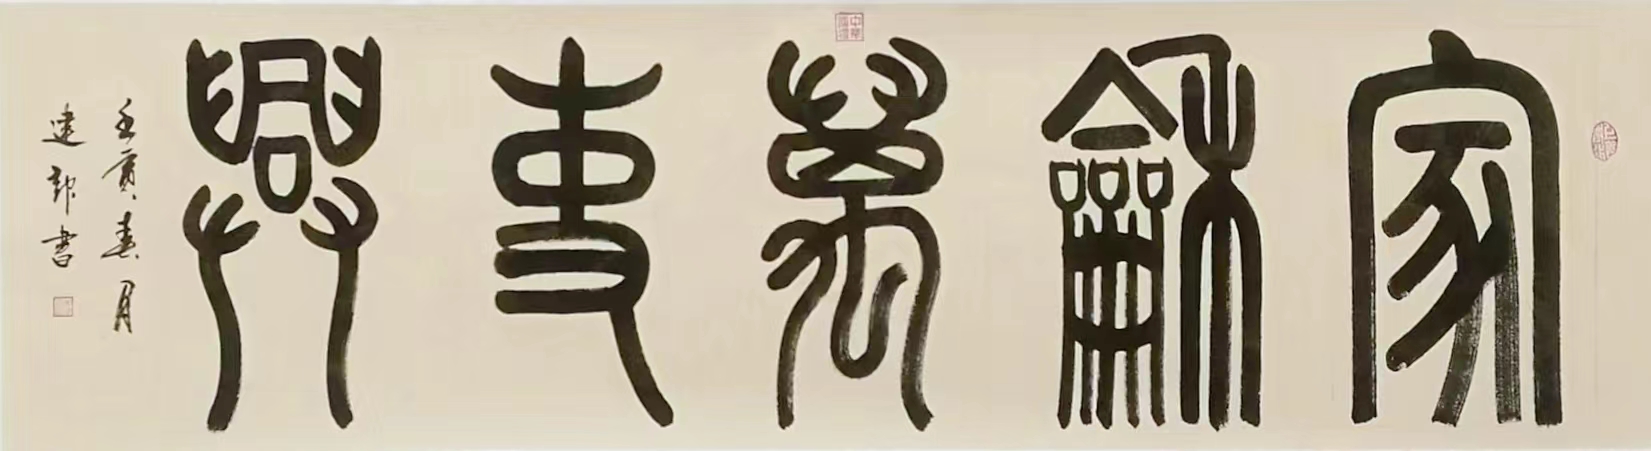 家龢萬事興
壬寅春月
建郎書